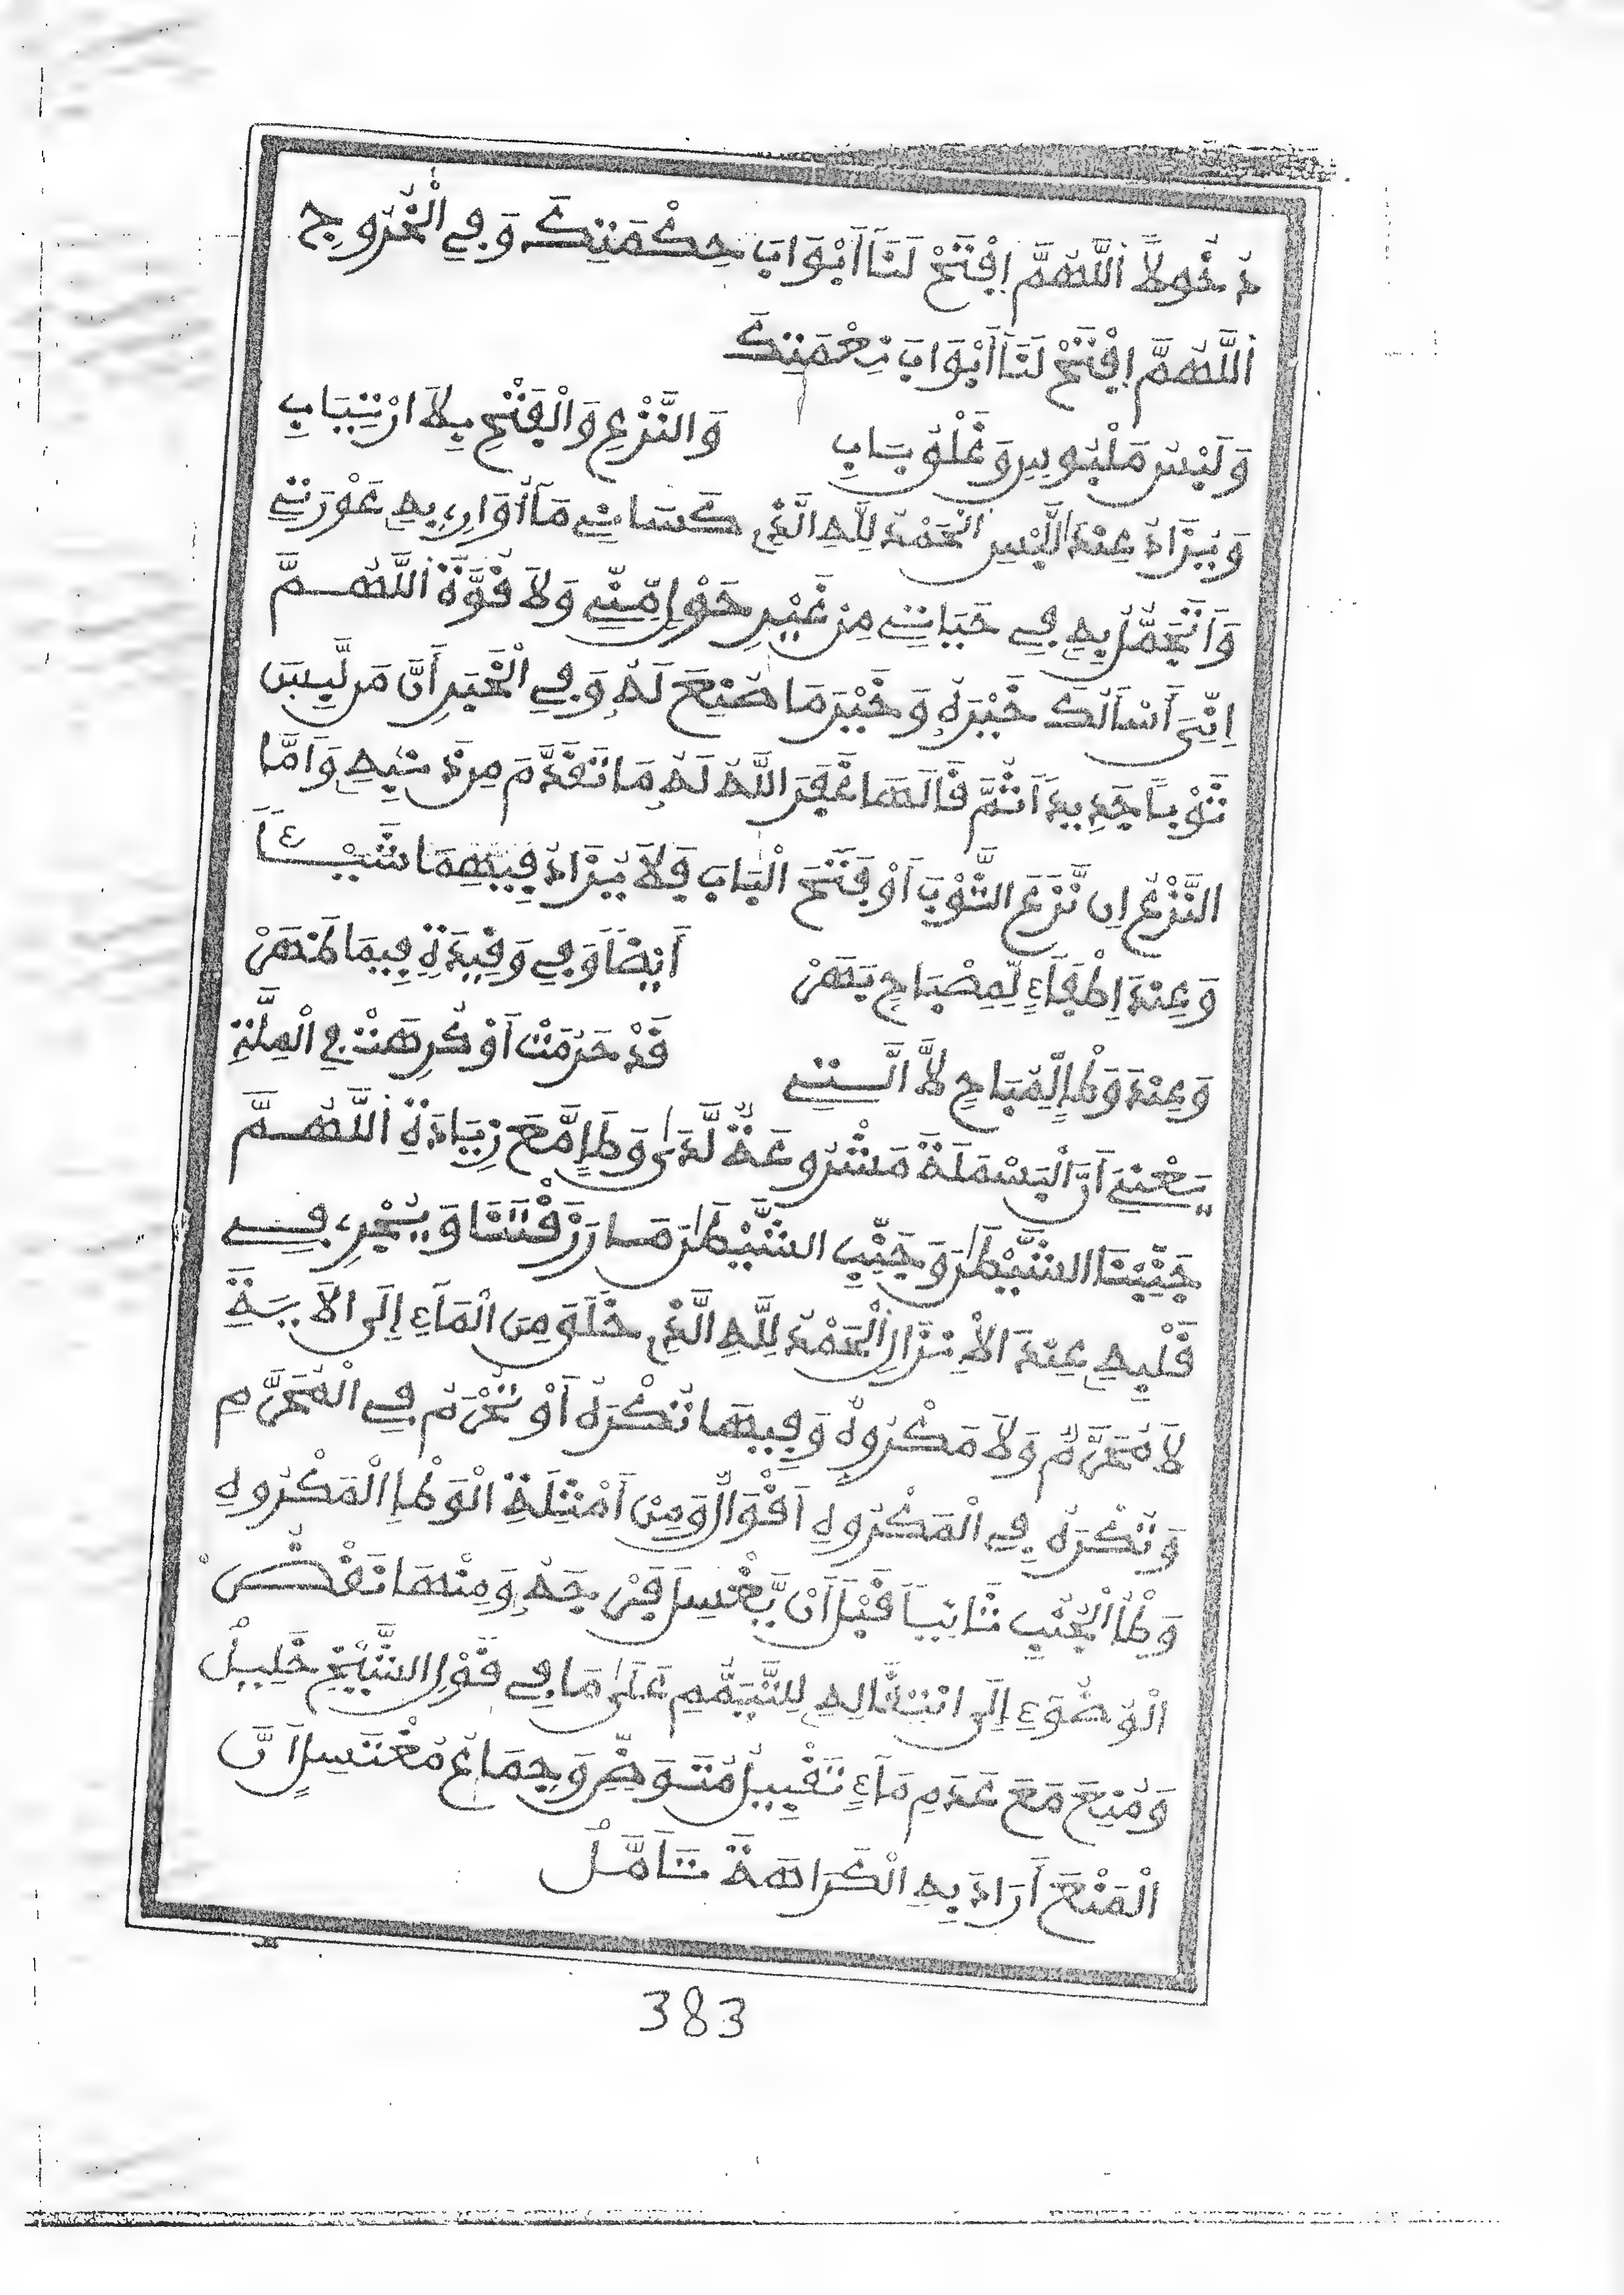 دُخُولاً اَللَّهُمَّ اِفْتَحْ لَنَآ أَبْوَابَ حِكْمَتِكَ وَفِي الْخُرُوجِ
اَللَّهُمَّ اِفْتَحْ لَنَآ أَبْوَابَ نِعْمَتِكَ
وَلُبْسِ مَلْبُوسٍ وَغَلْقِ بَابِ وَالنَّزْعِ وَالْفَتْحِ بِلاَ ارْتِيَابِ
وَيُزَادُ عِنْدَ اللُّبْسِ اَلْحَمْدُ لِلَّهِ الَّذِي كَسَانِي مَآ أُوَارِي بِهِ عَوْرَتِي
وَأَتَجَمَّلُ بِهِ فِي حَيَاتِي مِنْ غَيْرِ حَوْلٍ مِّنِّي وَلاَ قُوَّةٍ اَللَّهُمَّ
اِنِّيَ أَسْأَلُكَ خَيْرَهُ وَخَيْرَ مَا صُنِعَ لَهُ وَفِي الْخَبَرِ أَنَّ مَن لَّبِسَ
ثَوْباً جَدِيداً ثُمَّ قَالَهَا غَفَرَ اللَّهُ لَهُ مَا تَقَدَّمَ مِن ذَنبِهِ وَأَمَّا
النَّزْعُ اِن نَّزَعَ الثَّوْبَ أَوْ فَتَحَ الْبَابَ فَلاَ يُزَادُ فِيهِمَا شَيْئاً
وَعِنْدَ اِطْفَاءٍ لِمِصْبَاحٍ يَهَنْ أَيْضاً وَفِي وَقِيدَةٍ فِيمَا طَهَنْ
وَعِنْدَ وَطْءٍ لِمُبَاحٍ لاَ الَّتِي قَدْ حَرُمَتْ أَوْ كُرِهَتْ فِي الْمِلَّةِ
يَعْنِي أَنَّ الْبَسْمَلَةَ مَشْرُوعَةٌ لَّدَى وَطْءٍ مَّعَ زِيَادَةِ اَللَّهُمَّ
جَنِّبْنَا الشَّيْطَانَ وَجَنِّبِ الشَّيْطَانَ مَا رَزَقْتَنَا وَيُجْرِي فِي
قَلْبِهِ عِنْدَ الاِنْزَالِ اَلْحَمْدُ لِلَّهِ الَّذِي خَلَقَ مِنَ الْمَاءِ إِلَى الآيَةِ
لاَ مُحَرَّمٌ وَلاَ مَكْرُوهٌ وَفِيهَا تُكْرَهُ أَوْ تُحْرَمُ فِي الْمُحَرَّمِ
وَتُكْرَهُ فِي الْمَكْرُوهِ أَقْوَالٌ وَمِنْ أَمْثِلَةِ الْوَطْءِ الْمَكْرُوهِ
وَطْءُ الْجُنُبِ ثَانِياً قَبْلَ أَنْ يَّغْسِلَ فَرْجَهُ وَمِنْهَا نَقْضُ
الْوُضُوءِ إِلَى انْتِقَالِهِ لِلتَّيَمُّمِ عَلَى مَا فِي قَوْلِ الشَّيْخِ خَلِيلٌ
وَمُنِعَ مَعَ عَدَمِ مَاءٍ تَقْبِيلُ مُتَوَضِّئٍ وَجِمَاعُ مُغْتَسِلٍ أَنَّ
الْمَنْعَ أَرَادَ بِهِ الْكَرَاهَةَ تَأَمَّلْ
383